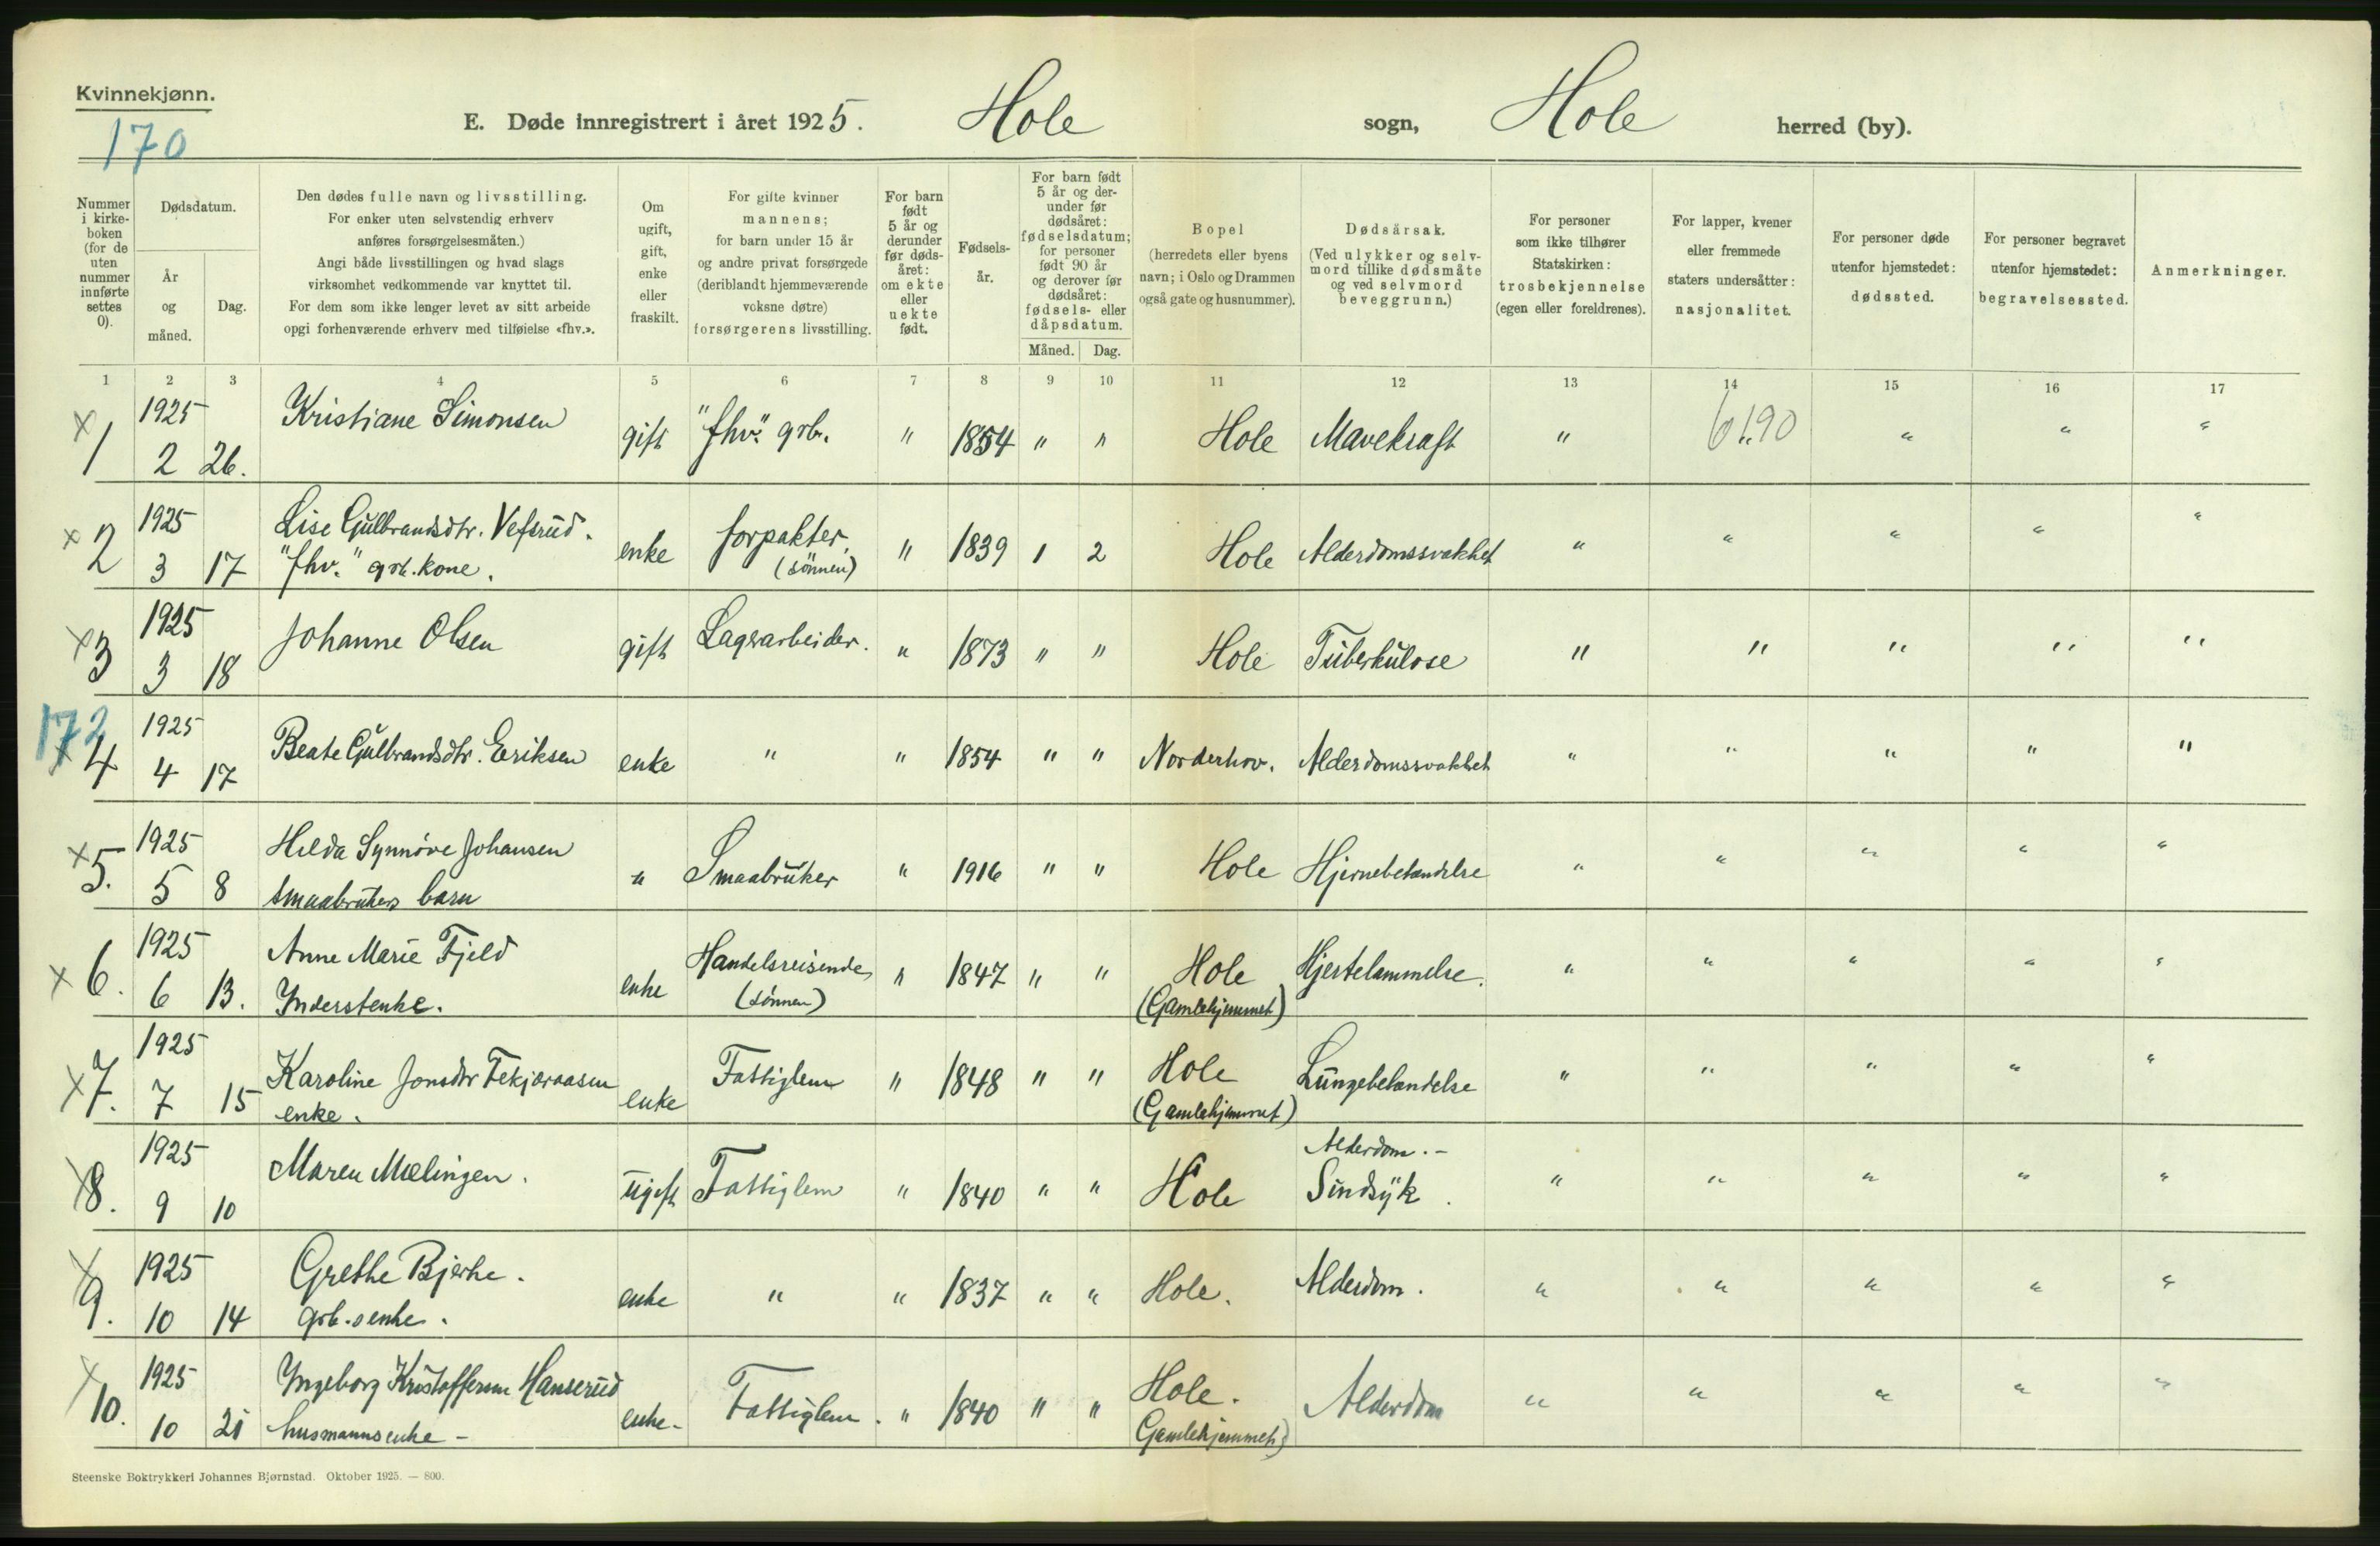 Kvinnekjønn.
170
E. Døde innregistrert i året 1925. Hole sogn, Hole herred (by).
Nummer i kirkeboken (for de uten nummer innførte settes 0).
Dødsdatum.
År og måned.
Dag.
Den dødes fulle navn og livsstilling.
For enker uten selvstendig erhverv
anføres forsørgelsesmåten.)
Angi både livsstillingen og hvad slags
virksomhet vedkommende var knyttet til.
For dem som ikke lenger levet av sitt arbeide
opgi forhenværende erhverv med tilføielse «fhv.».
Om ugift, gift, enke eller fraskilt.
For gifte kvinner
mannens;
for barn under 15 år
og andre privat forsørgede
(deriblandt hjemmeværende
voksne døtre)
forsørgerens livsstilling.
For barn født 5 år og derunder før dødsåret: om ekte eller uekte født.
Fødselsår.
For barn født 5 år og derunder før dødsåret: fødselsdatum; for personer født 90 år og derover før dødsåret: fødsels- eller dåpsdatum.
Måned. Dag.
Bopel
(herredets eller byens
navn; i Oslo og Drammen
også gate og husnummer).
Dødsårsak.
(Ved ulykker og selv-
mord tillike dødsmåte
og ved selvmord
beveggrunn.)
For personer
som ikke tilhører
Statskirken:
trosbekjennelse
(egen eller foreldrenes).
For lapper, kvener
eller fremmede
staters undersåtter:
nasjonalitet.
For personer døde
utenfor hjemstedet:
dødssted.
For personer begravet
utenfor hjemstedet:
begravelsessted.
Anmerkninger.
1 2 3 4 5 6 7 8 9 10 11 12 13 14 15 16 17
× 1 1925 2 26. Kristiane Simonsen gift "fhv." grb. " 1854 " " Hole Mavekraft " 6190 " " " "
× 2 1925 3 17 Lise Gulbrandsdtr. Vefsrud.
"fhv." grb. kone. enke forpakter (sönnen) " 1839 1 2 Hole Alderdomssvakhet " " " " "
× 3 1925 3 18 Johanne Olsen gift Lagerarbeider. " 1873 " " Hole Tuberkulose " " " " "
172
× 4 1925 4 17 Beate Gulbrandsdtr. Eriksen enke " " 1854 " " Norderhov. Alderdomssvakhet " " " " "
× 5. 1925 5 8 Hilda Synnöve Johansen
smaabrukers barn " Smaabruker " 1916 " " Hole Hjernebetændelse " " " " "
× 6. 1925 6 13. Anne Marie Fjeld
Inderstenke. enke Handelsreisende (sönnen) " 1847 " " Hole (Gamlehjemmet) Hjertelammelse. " " " " "
× 7. 1925 7 15 Karoline Jonsdtr
enke. enke Fattiglem " 1848 " " Hole (Gamlehjemmet) Lungebetændelse " " " " "
× 8. 1925 9 10 Maren Mælingen. ugift Fattiglem " 1840 " " Hole Alderdom. - Sindsyk. " " " " "
× 9. 1925 10 14 Grethe Bjerke.
grb.senke. enke " " 1837 " " Hole. Alderdom. " " " " "
× 10. 1925 10 21 Ingeborg Kristoffersen Hanserud
husmannsenke - enke - Fattiglem. " 1840 " " Hole. Gamlehjemmet) Alderdom " " " " "
Steenske Boktrykkeri Johannes Bjørnstad. Oktober 1925. — 800.